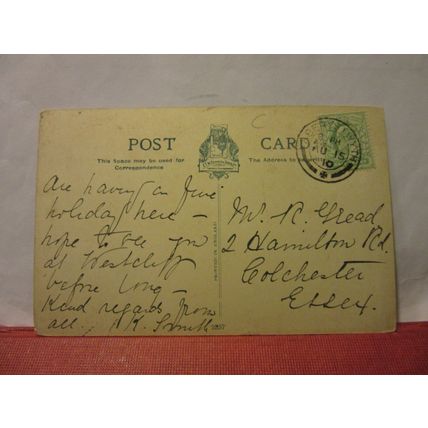 POST CARD
This Space may be used for Correspondence
The Address to be written
Are having a fine
holiday here –
hope to see you
at Westcliff
before long –
Kind regards from
all, K. Smith
Mr. R. Gread
2 Hamilton Rd.
Colchester
Essex.
PRINTED IN ENGLAND
AU 15
10